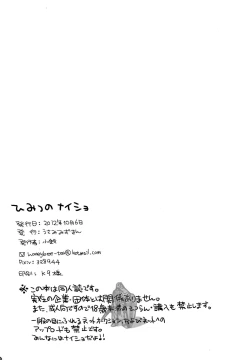 ひみつのナイショ
発行日：2012年10月6日
発行：うさみみずきん
発行者：小鈴
✉honeybee-tea@hotmail.com
Pixiv：328944
印刷：K9様
※この本は同人誌です。
実在の企業・団体とは関係ありません。
また、成人向ですので18歳未満の・購入も禁止します。
一般の目にふれるネットオークション、および
アップロードも禁止です。
みんなにはナイショだよ！